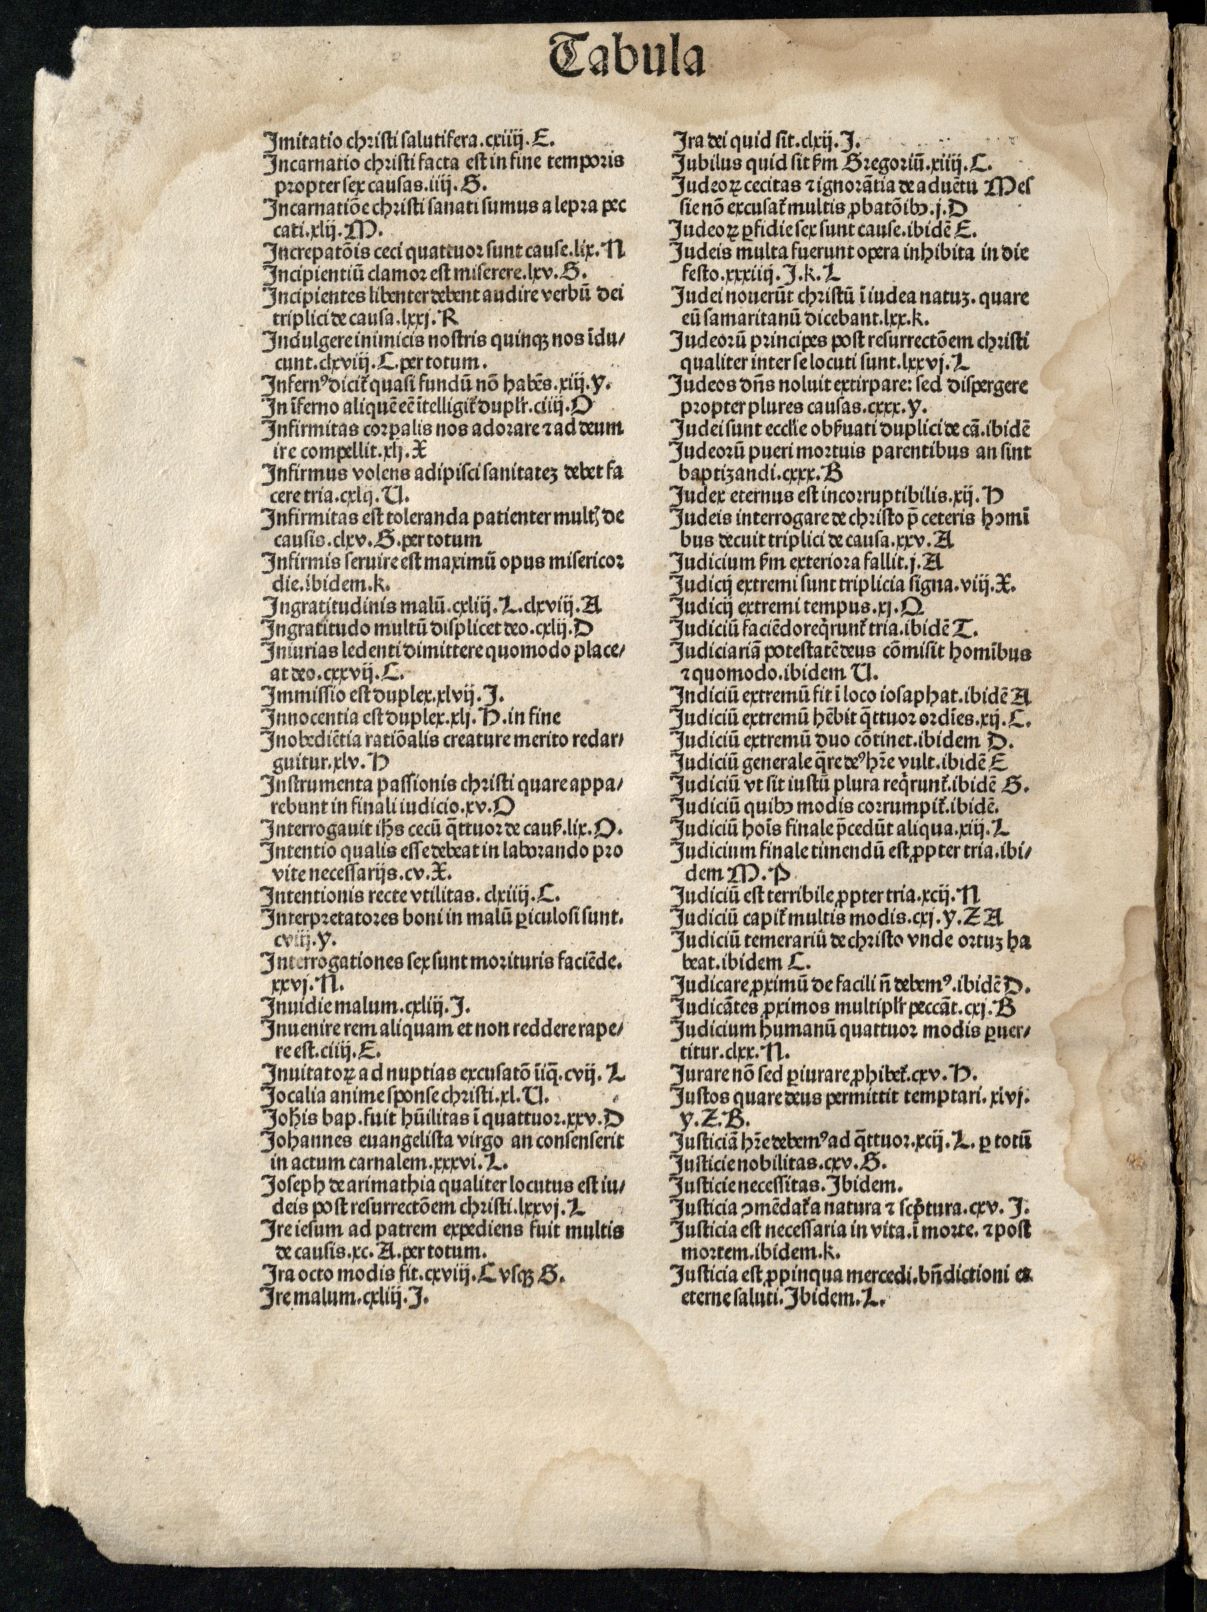 Tabula
Imitatio christi salutifera.cxiiij.E.
Incarnatio christi facta est in fine temporis
propter sex causas.iiij.G.
Incarnatiõe christi sanati sumus a lepra pec
cati.xlij.M.
Increpatõis ceci quattuor sunt cause.lix.N
Incipientiũ clamor est miserere.lxv.G.
Incipientes libenter debent audire verbũ dei
triplici de causa.lxxj.R
Indulgere inimicis nostris quinqꝫ nos ĩdu⸗
cunt.clxviij.C.per totum.
Infernꝰ dicit̃ quasi fundũ nõ habẽs.xiij.y.
In ĩferno aliquẽ eẽ ĩtelligit̃ duplr̃.ciiij.O
Infirmitas corꝑalis nos adorare ⁊ ad deum
ire compellit.xlj.X
Infirmus volens adipisci sanitateꝫ debet fa
cere tria.cxlij.U.
Infirmitas est toleranda patienter mult̉ de
causis.clxv.G.per totum
Infirmis seruire est maximũ opus misericor
die.ibidem.k.
Ingratitudinis malũ.cxliij.L.clxviij.A
Ingratitudo multũ displicet deo.cxlij.D
Iniurias ledenti dimittere quomodo place⸗
at deo.cxxvij.C.
Immissio est duplex.xlvij.I.
Innocentia est duplex.xlj.H.in fine
Inobediẽtia ratiõalis creature merito redar⸗
guitur.xlv.H
Instrumenta passionis christi quare appa⸗
rebunt in finali iudicio.xv.O
Interrogauit ihs̃ cecũ q̃ttuor de cauẜ.lix.O.
Intentio qualis esse debeat in laborando pro
vite necessarijs.cv.X.
Intentionis recte vtilitas.clxiiij.C.
Interpretatores boni in malũ ꝑiculosi sunt.
cviij.y.
Interrogationes sex sunt morituris faciẽde.
xxvj.N.
Inuidie malum.cxliij.I.
Inuenire rem aliquam et non reddere rape⸗
re est.ciiij.E.
Inuitatoꝝ ad nuptias excusatõ ĩiq̃.cvij.L
Jocalia anime sponse christi.xl.U.
Joh̃is bap.fuit hũilitas ĩ quattuor.xxv.D
Johannes euangelista virgo an consenserit
in actum carnalem.xxxvi.L.
Joseph de arimathia qualiter locutus est iu⸗
deis post resurrectõem christi.lxxvj.L
Ire iesum ad patrem expediens fuit multis
de causis.xc.A.per totum.
Ira octo modis fit.cxviij.C vsqꝫ G.
Ire malum.cxliij.I.
Ira dei quid sit.clxij.I.
Jubilus quid sit ẜm Gregoriũ.xiiij.C.
Judeoꝝ cecitas ⁊ ignorãtia de aduẽtu Mes
sie nõ excusat̃ multis ꝓbatõibꝰ.j.D
Judeoꝝ ꝑfidie sex sunt cause.ibidẽ E.
Judeis multa fuerunt opera inhibita in die
festo.xxxiiij.I.k.L
Judei nouerũt christũ ĩ iudea natuꝫ.quare
eũ samaritanũ dicebant.lxx.k.
Judeorũ principes post resurrectõem christi
qualiter inter se locuti sunt.lxxvj.L
Judeos dñs noluit extirpare: sed dispergere
propter plures causas.cxxx.y.
Judei sunt eccl̃ie obẜuati duplici de cã.ibidẽ
Judeorũ pueri mortuis parentibus an sint
baptizandi.cxxx.B
Judex eternus est incorruptibilis.xij.H
Judeis interrogare de christo p̃ ceteris homĩ
bus decuit triplici de causa.xxv.A
Judicium ẜm exteriora fallit.j.A
Judicij extremi sunt triplicia signa.viij.X.
Judicij extremi tempus.xj.Q
Judiciũ faciẽdo req̃runt̃ tria.ibidẽ T.
Judiciariã potestatẽ deus cõmisit homĩbus
⁊ quomodo.ibidem U.
Indiciũ extremũ fit ĩ loco iosaphat.ibidẽ A
Judiciũ extremũ hẽbit q̃ttuor ordĩes.xij.C.
Judiciũ extremũ duo cõtinet.ibidem D.
Judiciũ generale q̃re deꝰ hr̃e vult.ibidẽ E
Judiciũ vt sit iustũ plura req̃runt̃.ibidẽ G.
Judiciũ quibꝰ modis corrumpit̃.ibidẽ.
Judiciũ hoĩs finale p̃cedũt aliqua.xiij.L
Judicium finale timendũ est ꝓpter tria.ibi⸗
dem M.P
Judiciũ est terribile ꝓpter tria.xcij.N
Judiciũ capit̃ multis modis.cxj.y.Z A
Judiciũ temerariũ de christo vnde ortuꝫ ha
beat.ibidem C.
Judicare ꝓximũ de facili ñ debemꝰ.ibidẽ D.
Judicãtes ꝓximos multiplr̃ peccãt.cxj.B
Judicium humanũ quattuor modis ꝑuer⸗
titur.clxx.N.
Jurare nõ sed ꝑiurare ꝓhibet̃.cxv.H.
Justos quare deus permittit temptari.xlvj.
y.Z.B.
Justiciã hr̃e debemꝰ ad q̃ttuor.xcij.L.ꝑ totũ
Justicie nobilitas.cxv.G.
Justicie necessitas.Ibidem.
Justicia ꝯmẽdat̃ a natura ⁊ scp̃tura.cxv.I.
Justicia est necessaria in vita.ĩ morte.⁊ post
mortem.ibidem.k.
Justicia est ꝓpinqua mercedi.bñdictioni et
eterne saluti.Ibidem.L.